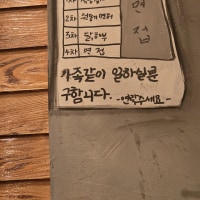 2차
3차 달리기
4차 면접
면접
가족같이 일하실분
구합니다.
-연락주세요-